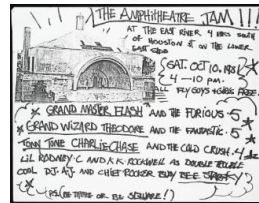 THE AMPHITHEATRE JAM!!!
AT THE EAST RIVER 4 BLKS SOUTH
OF HOUSTON ST ON THE LOWER
EAST SIDE
SAT. OCT 10. 1981
4-10 P.M.
ALL FLY GUYS + GIRLS FREE
GRAND MASTER FLASH AND THE FURIOUS 5
GRAND WIZARD THEODORE AND THE FANTASTIC 5
TONY TONE CHARLIE CHASE AND THE COLD CRUSH 4
LIL RODNEY C AND K.K. ROCKWELL AS DOUBLE TROUBLE
COOL D.J. A.J. AND CHIEF ROCKER BUSY BEE STARSKI
P.S. BE THERE OR BE SQUARE!